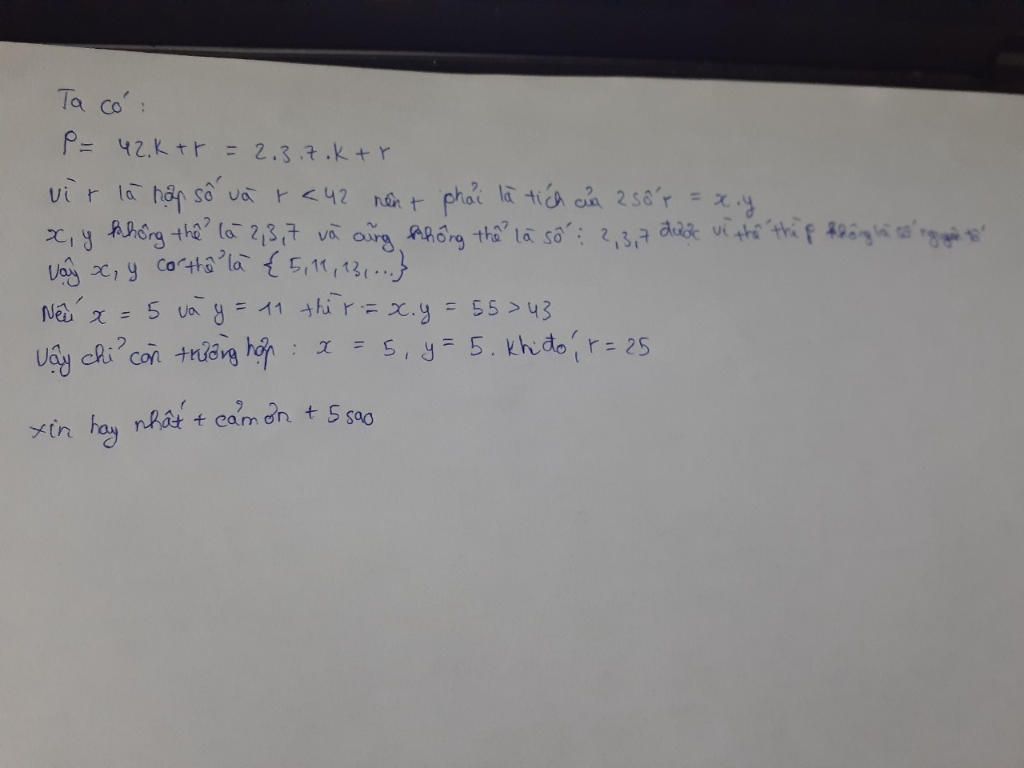 Ta có:
P = 42.k + r = 2.3.7.k + r
vì r là hợp số và r < 42 nên r phải là tích của 2 số r = x.y
x, y không thể là 2,3,7 và cũng không thể là số: 2,3,7 được vì thế thì p không là số nguyên tố
Vậy x, y có thể là {5,11,13,...}
Nếu x = 5 và y = 11 thì r = x.y = 55 > 43
Vậy chỉ còn trường hợp: x = 5, y = 5. khi đó, r = 25
xin hay nhất + cảm ơn + 5 sao